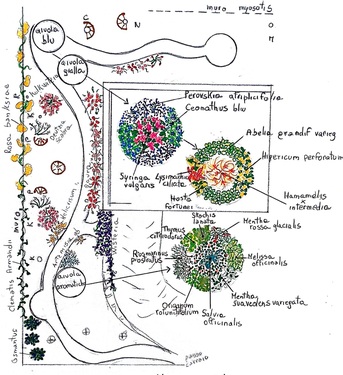 muro myosotis
C
N
O
aiuola
blu
aiuola
gialla
Perovskia atriplicifolia
Ceonathus blu
Abelia grandif varieg
Hipericum perforatum
Syringa
vulgaris
Lysimachia
ciliata
Hosta
Fortunei
Hamamelis
x
intermedia
Rosa banksiae
muro
clematis Armandii
Osmantus
Wisteria
Stachis
lanata
Thymus
citriodorus
Mentha
rossa glacialis
Rosmarinus
prostratus
Melissa
officinalis
aiuola
aromatica
Origanum
rotundifolium
Salvia
officinalis
Mentha
suaveolens variegata
passo
carraio